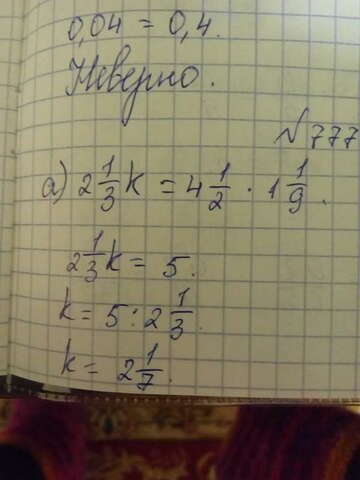 0,04 = 0,4.
Неверно.
№777
а) 2 1/3 k = 4 1/2 · 1 1/9.
2 1/3 k = 5.
k = 5 : 2 1/3.
k = 2 1/7.